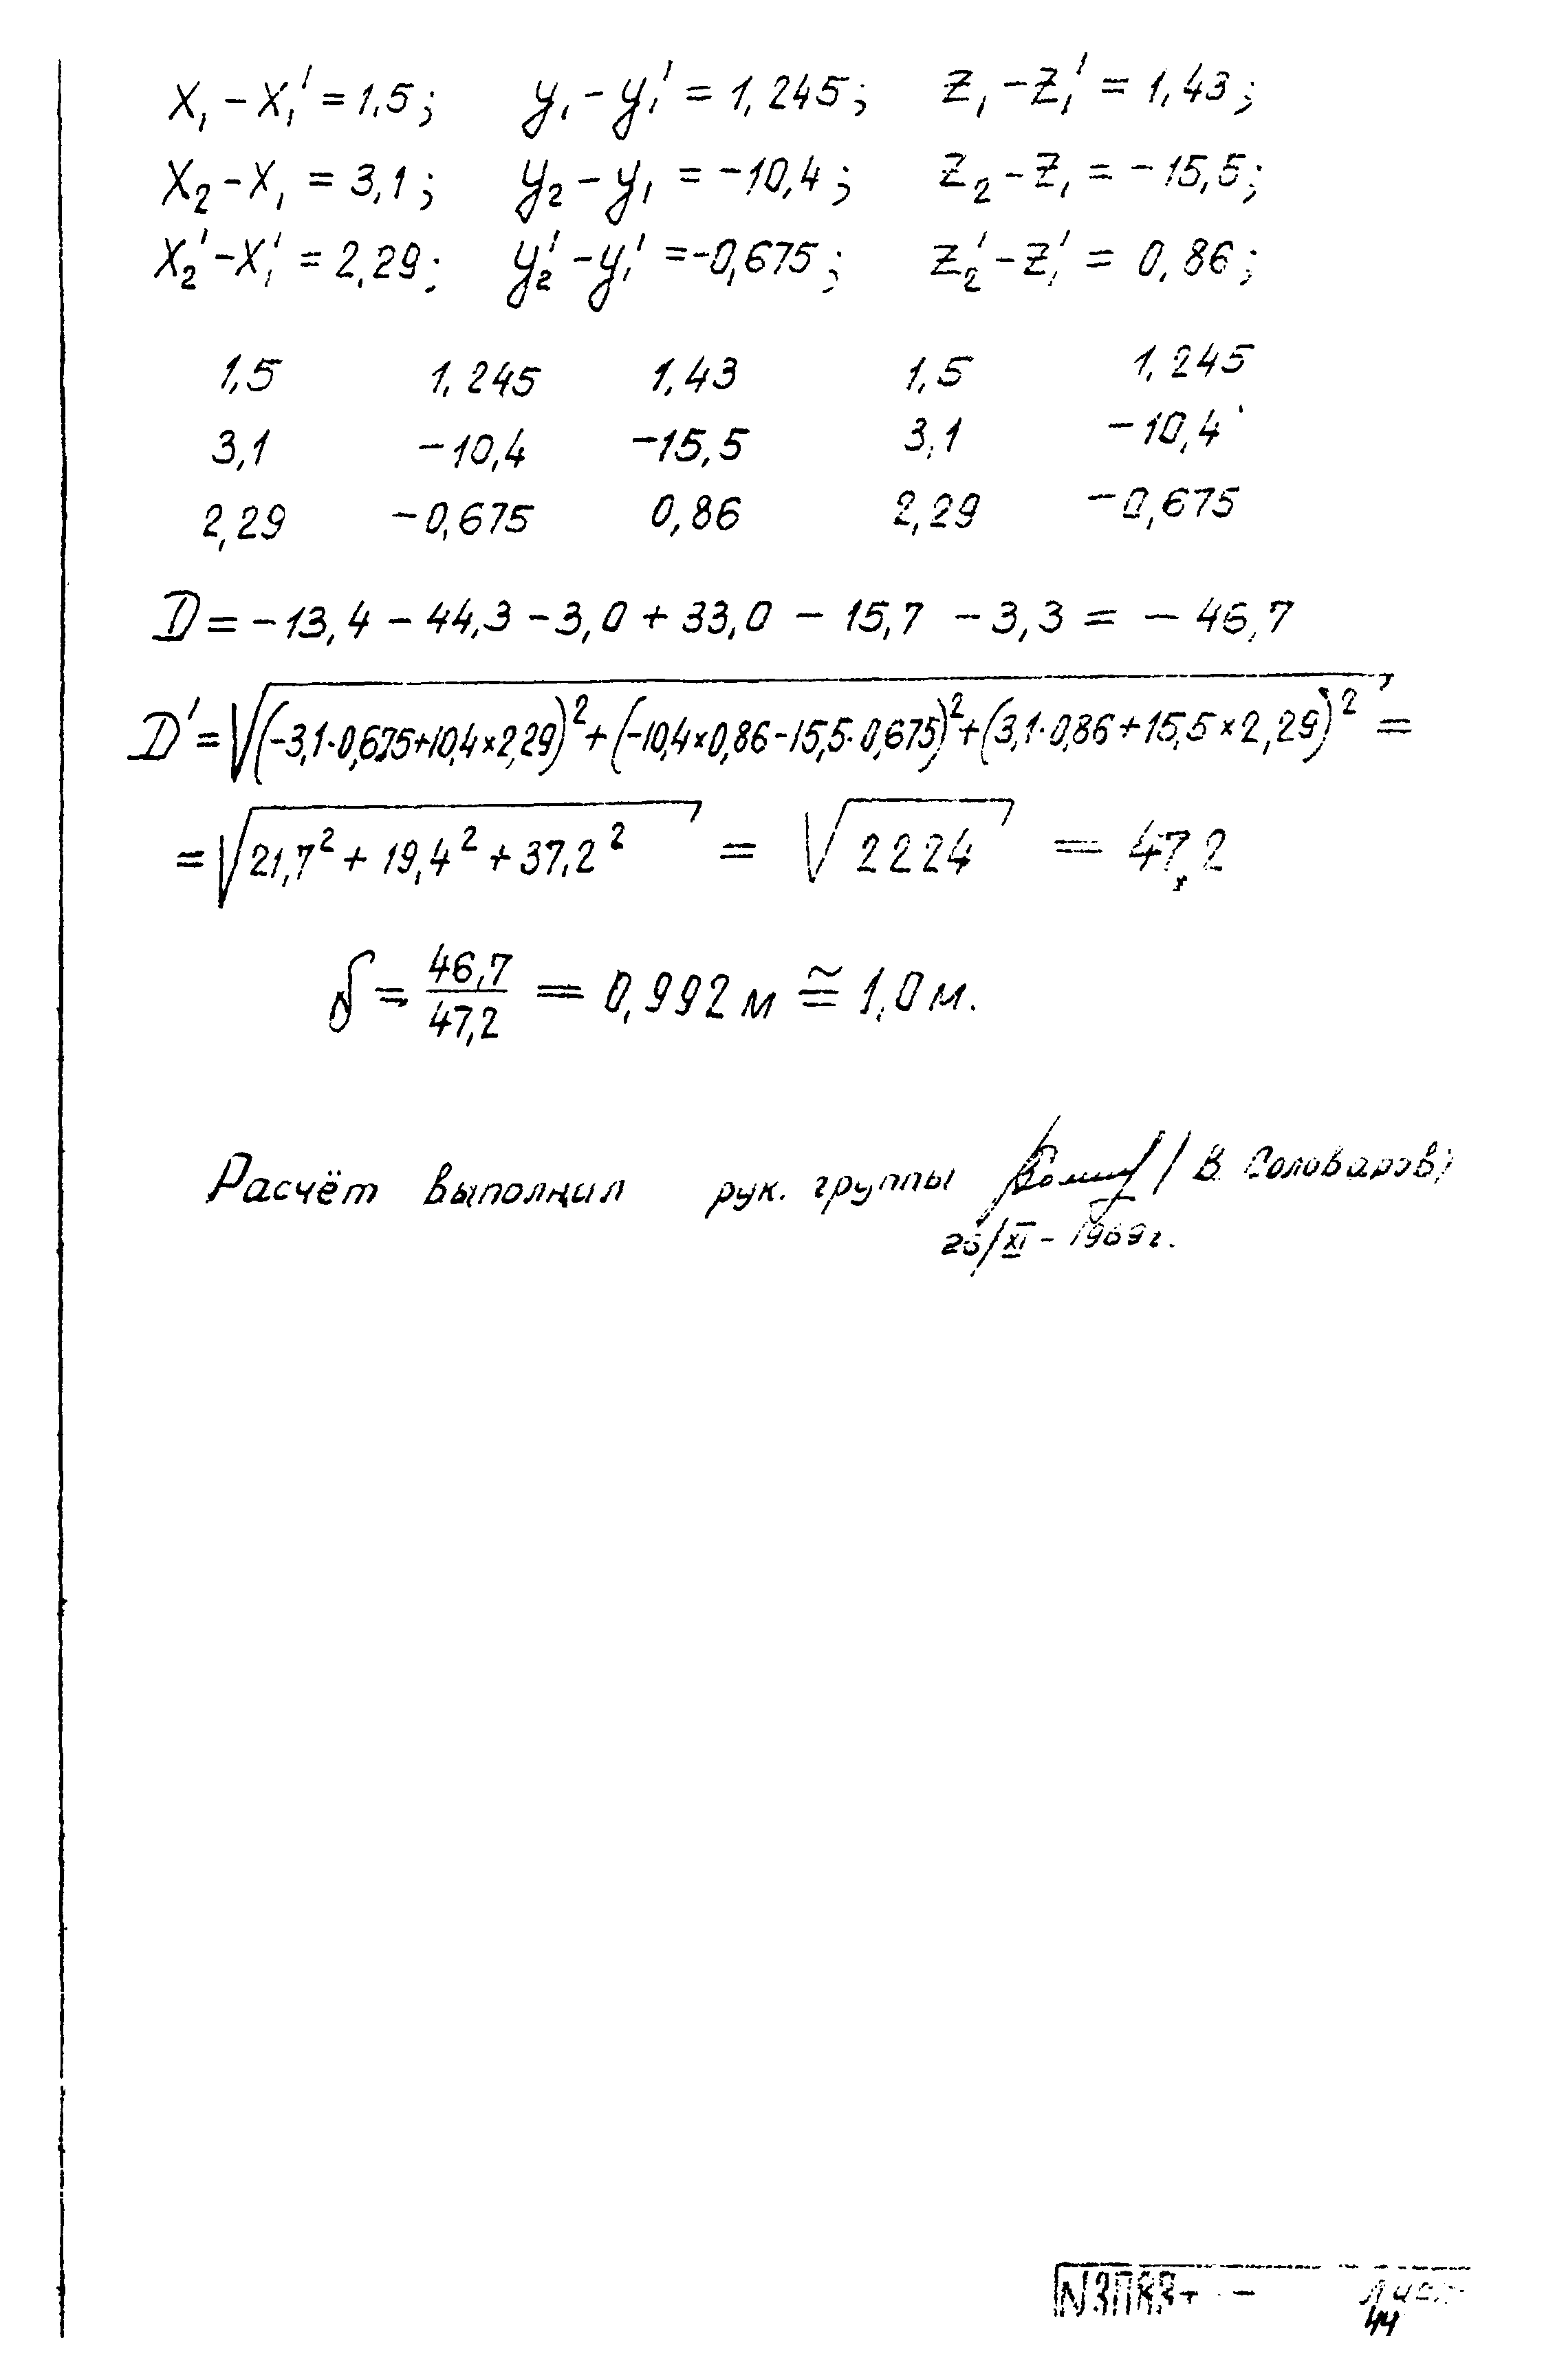 x₁ - x₁' = 1,5; y₁ - y₁' = 1,245; z₁ - z₁' = 1,43;
x₂ - x₁ = 3,1; y₂ - y₁ = -10,4; z₂ - z₁ = -15,5;
x₂' - x₁' = 2,29; y₂' - y₁' = -0,675; z₂' - z₁' = 0,86;
1,5 1,245 1,43 1,5 1,245
3,1 -10,4 -15,5 3,1 -10,4
2,29 -0,675 0,86 2,29 -0,675
D = -13,4 - 44,3 - 3,0 + 33,0 - 15,7 - 3,3 = - 46,7
D' = √(-3,1·0,675+10,4×2,29)² + (-10,4×0,86-15,5·0,675)² + (3,1·0,86+15,5×2,29)² =
= √21,7² + 19,4² + 37,2² = √2224 = 47,2
δ = 46,7/47,2 = 0,992 м ≅ 1,0 м.
Расчёт выполнил рук. группы / В. Соловаров/
26/XI - 1969 г.
лист
44